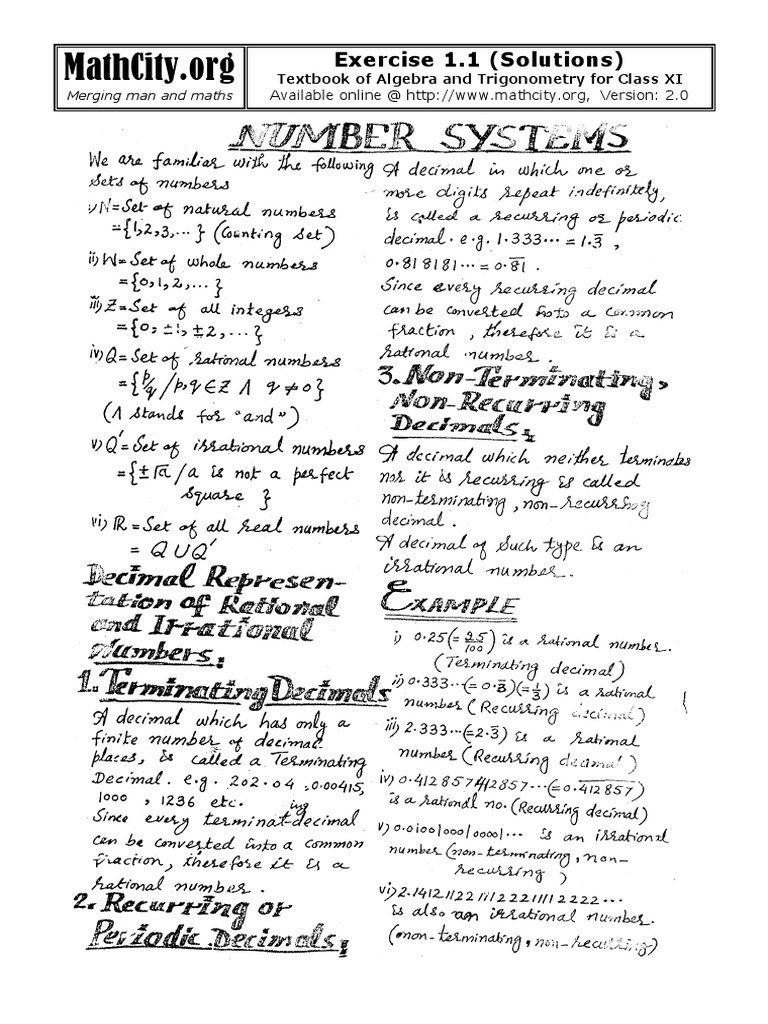 MathCity.org
Merging man and maths
Exercise 1.1 (Solutions)
Textbook of Algebra and Trigonometry for Class XI
Available online @ http://www.mathcity.org, Version: 2.0
NUMBER SYSTEMS
We are familiar with the following
sets of numbers
i) N = Set of natural numbers
= {1, 2, 3, ...} (Counting Set)
ii) W = Set of whole numbers
= {0, 1, 2, ...}
iii) Z = Set of all integers
= {0, ±1, ±2, ...}
iv) Q = Set of rational numbers
= {p/q / p, q ∈ Z ∧ q ≠ 0}
(∧ stands for "and")
v) Q' = Set of irrational numbers
= {±√a / a is not a perfect
square }
vi) ℝ = Set of all real numbers
= Q ∪ Q'
Decimal Represen-
tation of Rational
and Irrational
Numbers:
1. Terminating Decimals
A decimal which has only a
finite number of decimal
places, is called a Terminating
Decimal. e.g. 202.04, 0.00415,
1000, 1236 etc.
Since every terminating decimal
can be converted into a common
fraction, therefore it is a
rational number.
2. Recurring or
Periodic Decimals:
A decimal in which one or
more digits repeat indefinitely,
is called a recurring or periodic
decimal. e.g. 1.333... = 1.3̅,
0.818181... = 0.8̅1̅.
Since every recurring decimal
can be converted into a common
fraction, therefore it is a
rational number.
3. Non-Terminating,
Non-Recurring
Decimals:
A decimal which neither terminates
nor it is recurring is called
non-terminating, non-recurring
decimal.
A decimal of such type is an
irrational number.
EXAMPLE
i) 0.25 (= 25/100) is a rational number.
(Terminating decimal)
ii) 0.333... (= 0.3̅) (= 1/3) is a rational
number (Recurring decimal)
iii) 2.333... (= 2.3̅) is a rational
number (Recurring decimal)
iv) 0.412857412857... (= 0.4̅1̅2̅8̅5̅7̅)
is a rational no. (Recurring decimal)
v) 0.01001000100001... is an irrational
number (non-terminating, non-
recurring)
vi) 2.1412112211122211112222...
is also an irrational number.
(non-terminating, non-recurring)